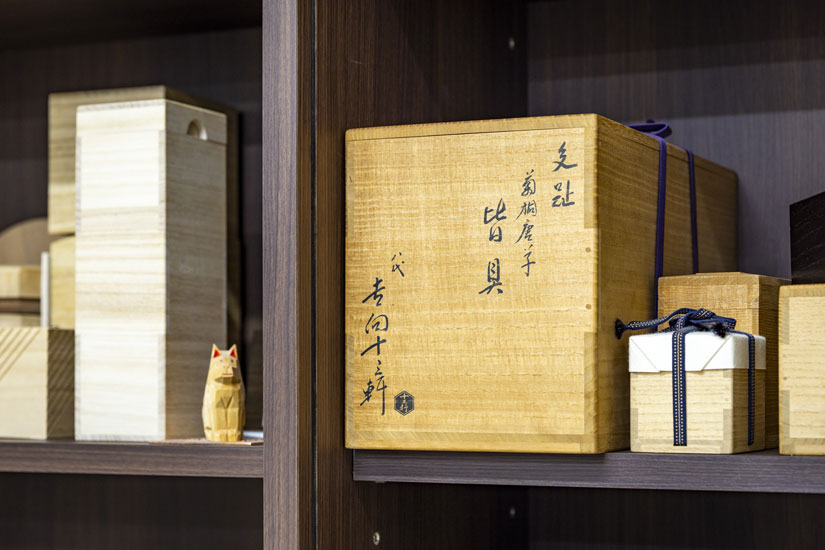 交趾
菊桐唐草
皆具
八代
吉向十三軒